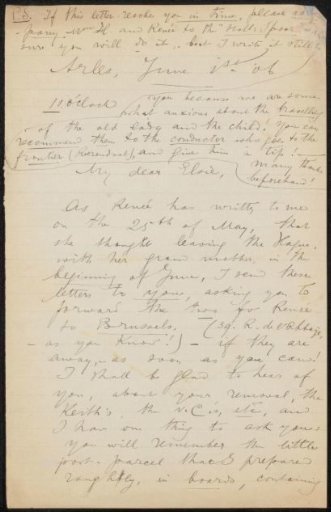 If this letter reaches you in time, please
Mrs H. and Renée to the Holl. spoor
sure you will do it, but I wish it
Arles, June 1st '06
11 o'clock you because we are some
what anxious about the travelling
of the old lady and the child. You can
recommend them to the conductor who goes to the
frontier (Roosendaal), and give him a tip.
many thanks
beforehand!
My dear Elsie,
As Renée has written to me
on the 25th of May, that
she thought leaving the Hague
with her grand mother, in the
beginning of June, I send these
letters to you, asking you to
forward the two for Renée
to Brussels, (39. R. de l'Abbaye,
- as you know!) - if they are
away, - as soon as you can.
I shall be glad to hear of
you, about your removal, the
Keith's, the v. C.'s, etc, and
I have one thing to ask you:
you will remember the little
post-parcel that I prepared
roughly, in boards, containing